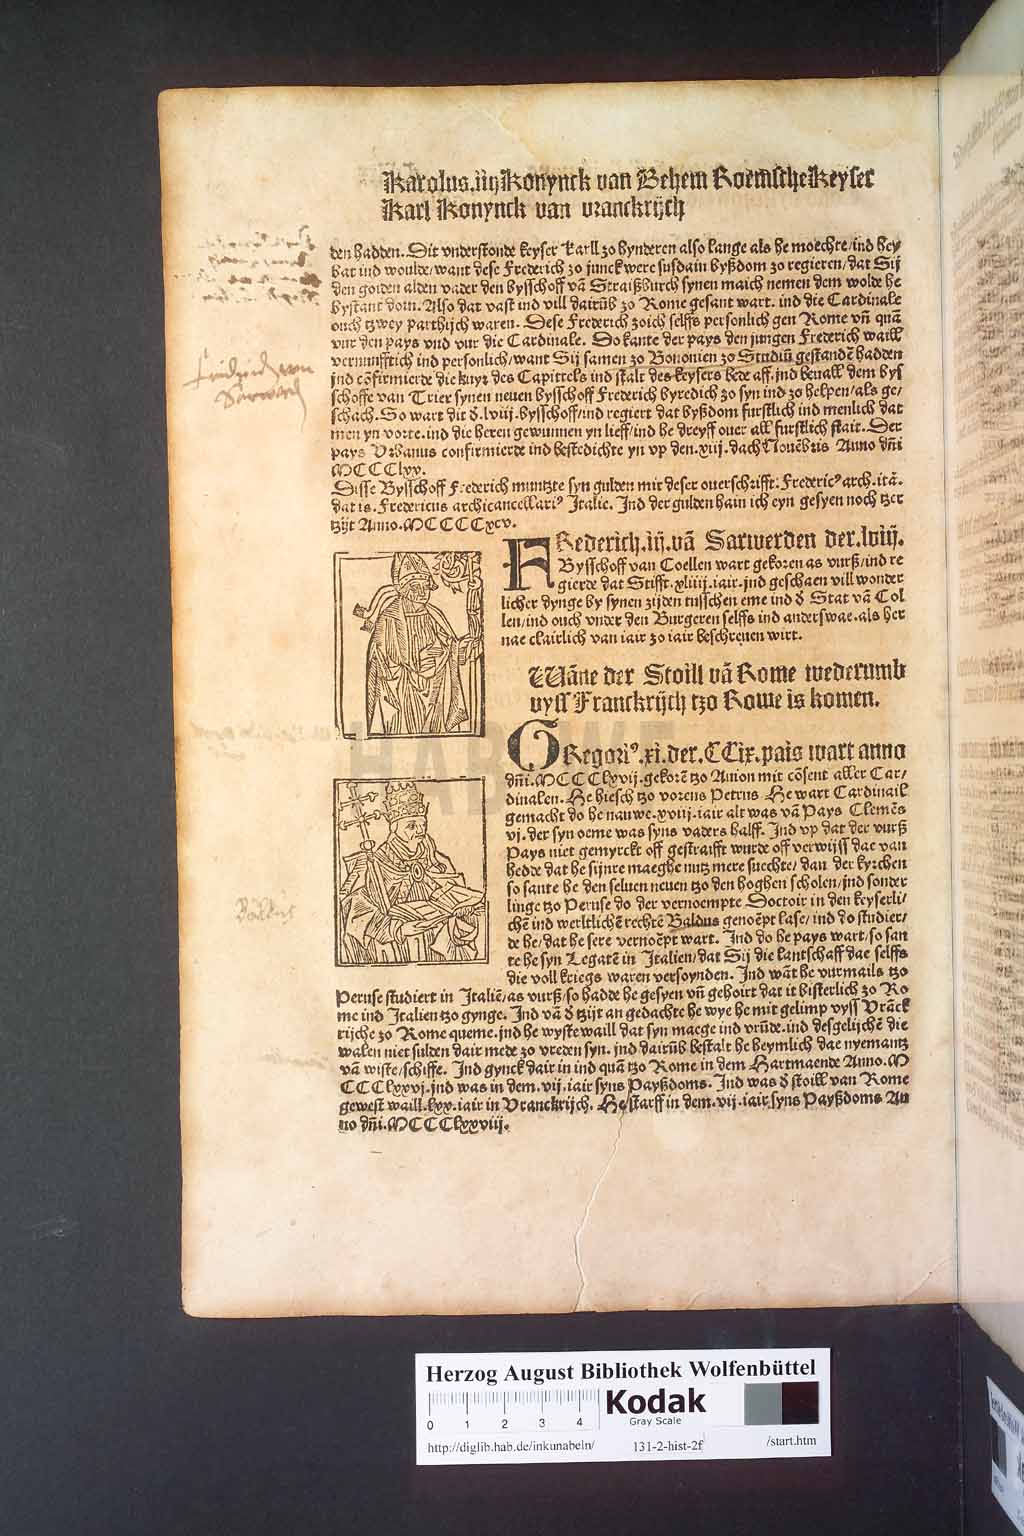 Karolus.iiij Konynck van Behem Roemsche Keyser
Karl Konynck van vranckrijch
den hadden. Dit vnderstonde keyser karll zo hynderen also lange als he moechte/ind hey
hat ind woulde/want dese Frederich zo junck were susdain byßdom zo regieren/dat Sij
den goiden alden vader den bysschoff vā Straißburch synen maich nemen dem wolde he
bystant doin. Also dat vast ind vill dairūb zo Rome gesant wart. ind die Cardinale
ouch tzwey parthijch waren. Dese Frederich zoich selffs personlich gen Rome vñ quā
vur den pays vnd vur die Cardinale. Do kante der pays den jungen Frederich waill
vernunfftich ind personlich/want Sij samen zo Bononien zo Studiū gestandē hadden
jnd cōfirmierde die kuyr des Capittels ind stalt des keysers bede aff. ind beuall dem bys
schoffe van Trier synen neuen bysschoff Frederich byredich zo syn ind zo helpen/als ge/
schach. So wart dit ð.lviij.bysschoff/ind regiert dat byßdom furstlich ind menlich dat
men yn vorte.ind die heren gewunnen yn lieff/ind he dreyff ouer all furstlich stait. Der
pays Vrbanus confirmierde ind bestedichte yn vp den.xiij.dach Nouēbris Anno dñi
MCCCClxx.
Disse Bysschoff Frederich muntzte syn gulden mit deser ouerschrifft: Frederic⁹ arch.itā.
dat is.Fredericus archicancellari⁹ Italie. Ind der gulden hain ich eyn gesyen noch tzer
tzijt Anno.MCCCCxcv.
FRederich.iij.vā Sarwerden der.lviij.
Bysschoff van Coellen wart gekoren as vurß/ind re
gierde dat Stifft.xliiij.iair.jnd geschaen vill wonder
licher dynge by synen zijden tusschen eme ind ð Stat vā Col
len/ind ouch vnder den Burgeren selffs ind anderswae.als her
nae clairlich van iair zo iair beschreuen wirt.
Wāne der Stoill vā Rome wederumb
vyss Franckrijch tzo Rowe is komen.
GRegori⁹.xi.der.CCix.pais wart anno
dñi.MCCCClxvij.gekorē tzo Auion mit cōsent aller Car/
dinalen. He hiesch tzo vorens Petrus He wart Cardinail
gemacht do he nauwe.xviij.iair alt was vā Pays Clemēs
vj.der syn oeme was syns vaders halff. Ind vp dat der vurß
Pays niet gemyrckt off gestraifft wurde off verwijss dae van
hedde dat he sijnre maeghe nutz mere suechte/ dan der kyrchen
so sante he den seluen neuen tzo den hoghen scholen/jnd sonder
linge tzo Peruse do der vernoempte Doctoir in den keyserli/
chē ind werltlichē rechtē Baldus genoēpt lase/ ind do studier/
de he/dat he sere vernoēpt wart. Ind do he pays wart/so san
te he syn Legatē in Italien/dat Sij die lantschaff dae selffs
die voll kriegs waren versoynden. Ind wāt he vurmails tzo
Peruse studiert in Italiē/as vurß/so hadde he gesyen vñ gehoirt dat it bisterlich zo Ro
me ind Italien tzo gynge. Ind vā ð tzijt an gedachte he wye he mit gelimp vyss Vrāck
rijche zo Rome queme.jnd he wyste waill dat syn maege ind vrūde.ind desgelijchē die
walen niet sulden dair mede zo vreden syn. jnd dairūb bestalt he heymlich dae nyemantz
vā wiste/schiffe. Ind gynck dair in ind quā tzo Rome in dem Hartmaende Anno.M
CCCClxxvj.jnd was in dem.vij.iair syns Payßdoms. Ind was ð stoill van Rome
gewest waill.lxx.iair in Vranckrijch. He starff in dem.vij.iair syns Payßdoms An
no dñi.MCCCClxxviij.
Baldus
HAB WF
Herzog August Bibliothek Wolfenbüttel
0 1 2 3 4
Kodak
Gray Scale
http://diglib.hab.de/inkunabeln/ 131-2-hist-2f /start.htm